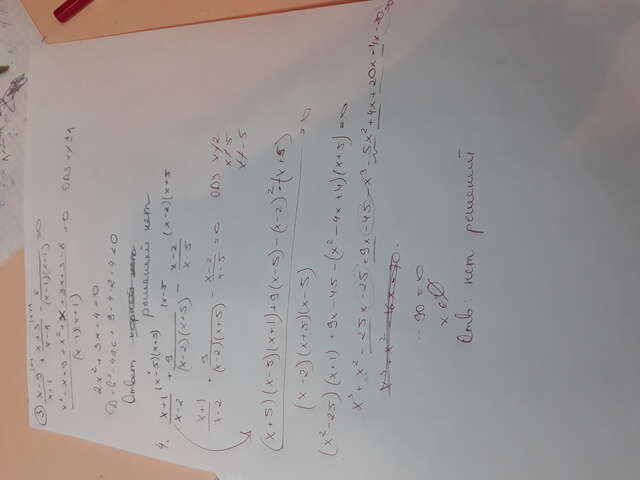 3 (x-9)/(x+1) + (x+3)/(x-1) - 6/((x-1)(x+1)) = 0
(x² - x + 9 + x² + x + 3x + 3 - 8)/((x-1)(x+1)) = 0 ОДЗ x≠±1
2x² + 3x + 4 = 0
D = b² - 4ac = 9 - 4·2·4 < 0
Ответ
решений нет
4. (x+1)/(x-2) (x-5)(x+5) + 9/((x-2)(x+5)) (x-5 - (x-2)/(x-5) (x-2)(x+5
(x+1)/(x-2) + 9/((x-2)(x+5)) - (x-2)/(x-5) = 0 ОДЗ x≠2
x≠5
x≠-5
((x+5)(x-5)(x+1) + 9(x-5) - (x-2)²(x+5))/((x-2)(x+5)(x-5)) = 0
(x²-25)(x+1) + 9x - 45 - (x² - 4x + 4)(x+5) = 0
x³ + x² - 25x - 25 + 9x - 45 - x³ - 5x² + 4x + 20x - 4x - 20
- 90 = 0
x ∈ ∅
Отв: нет решений